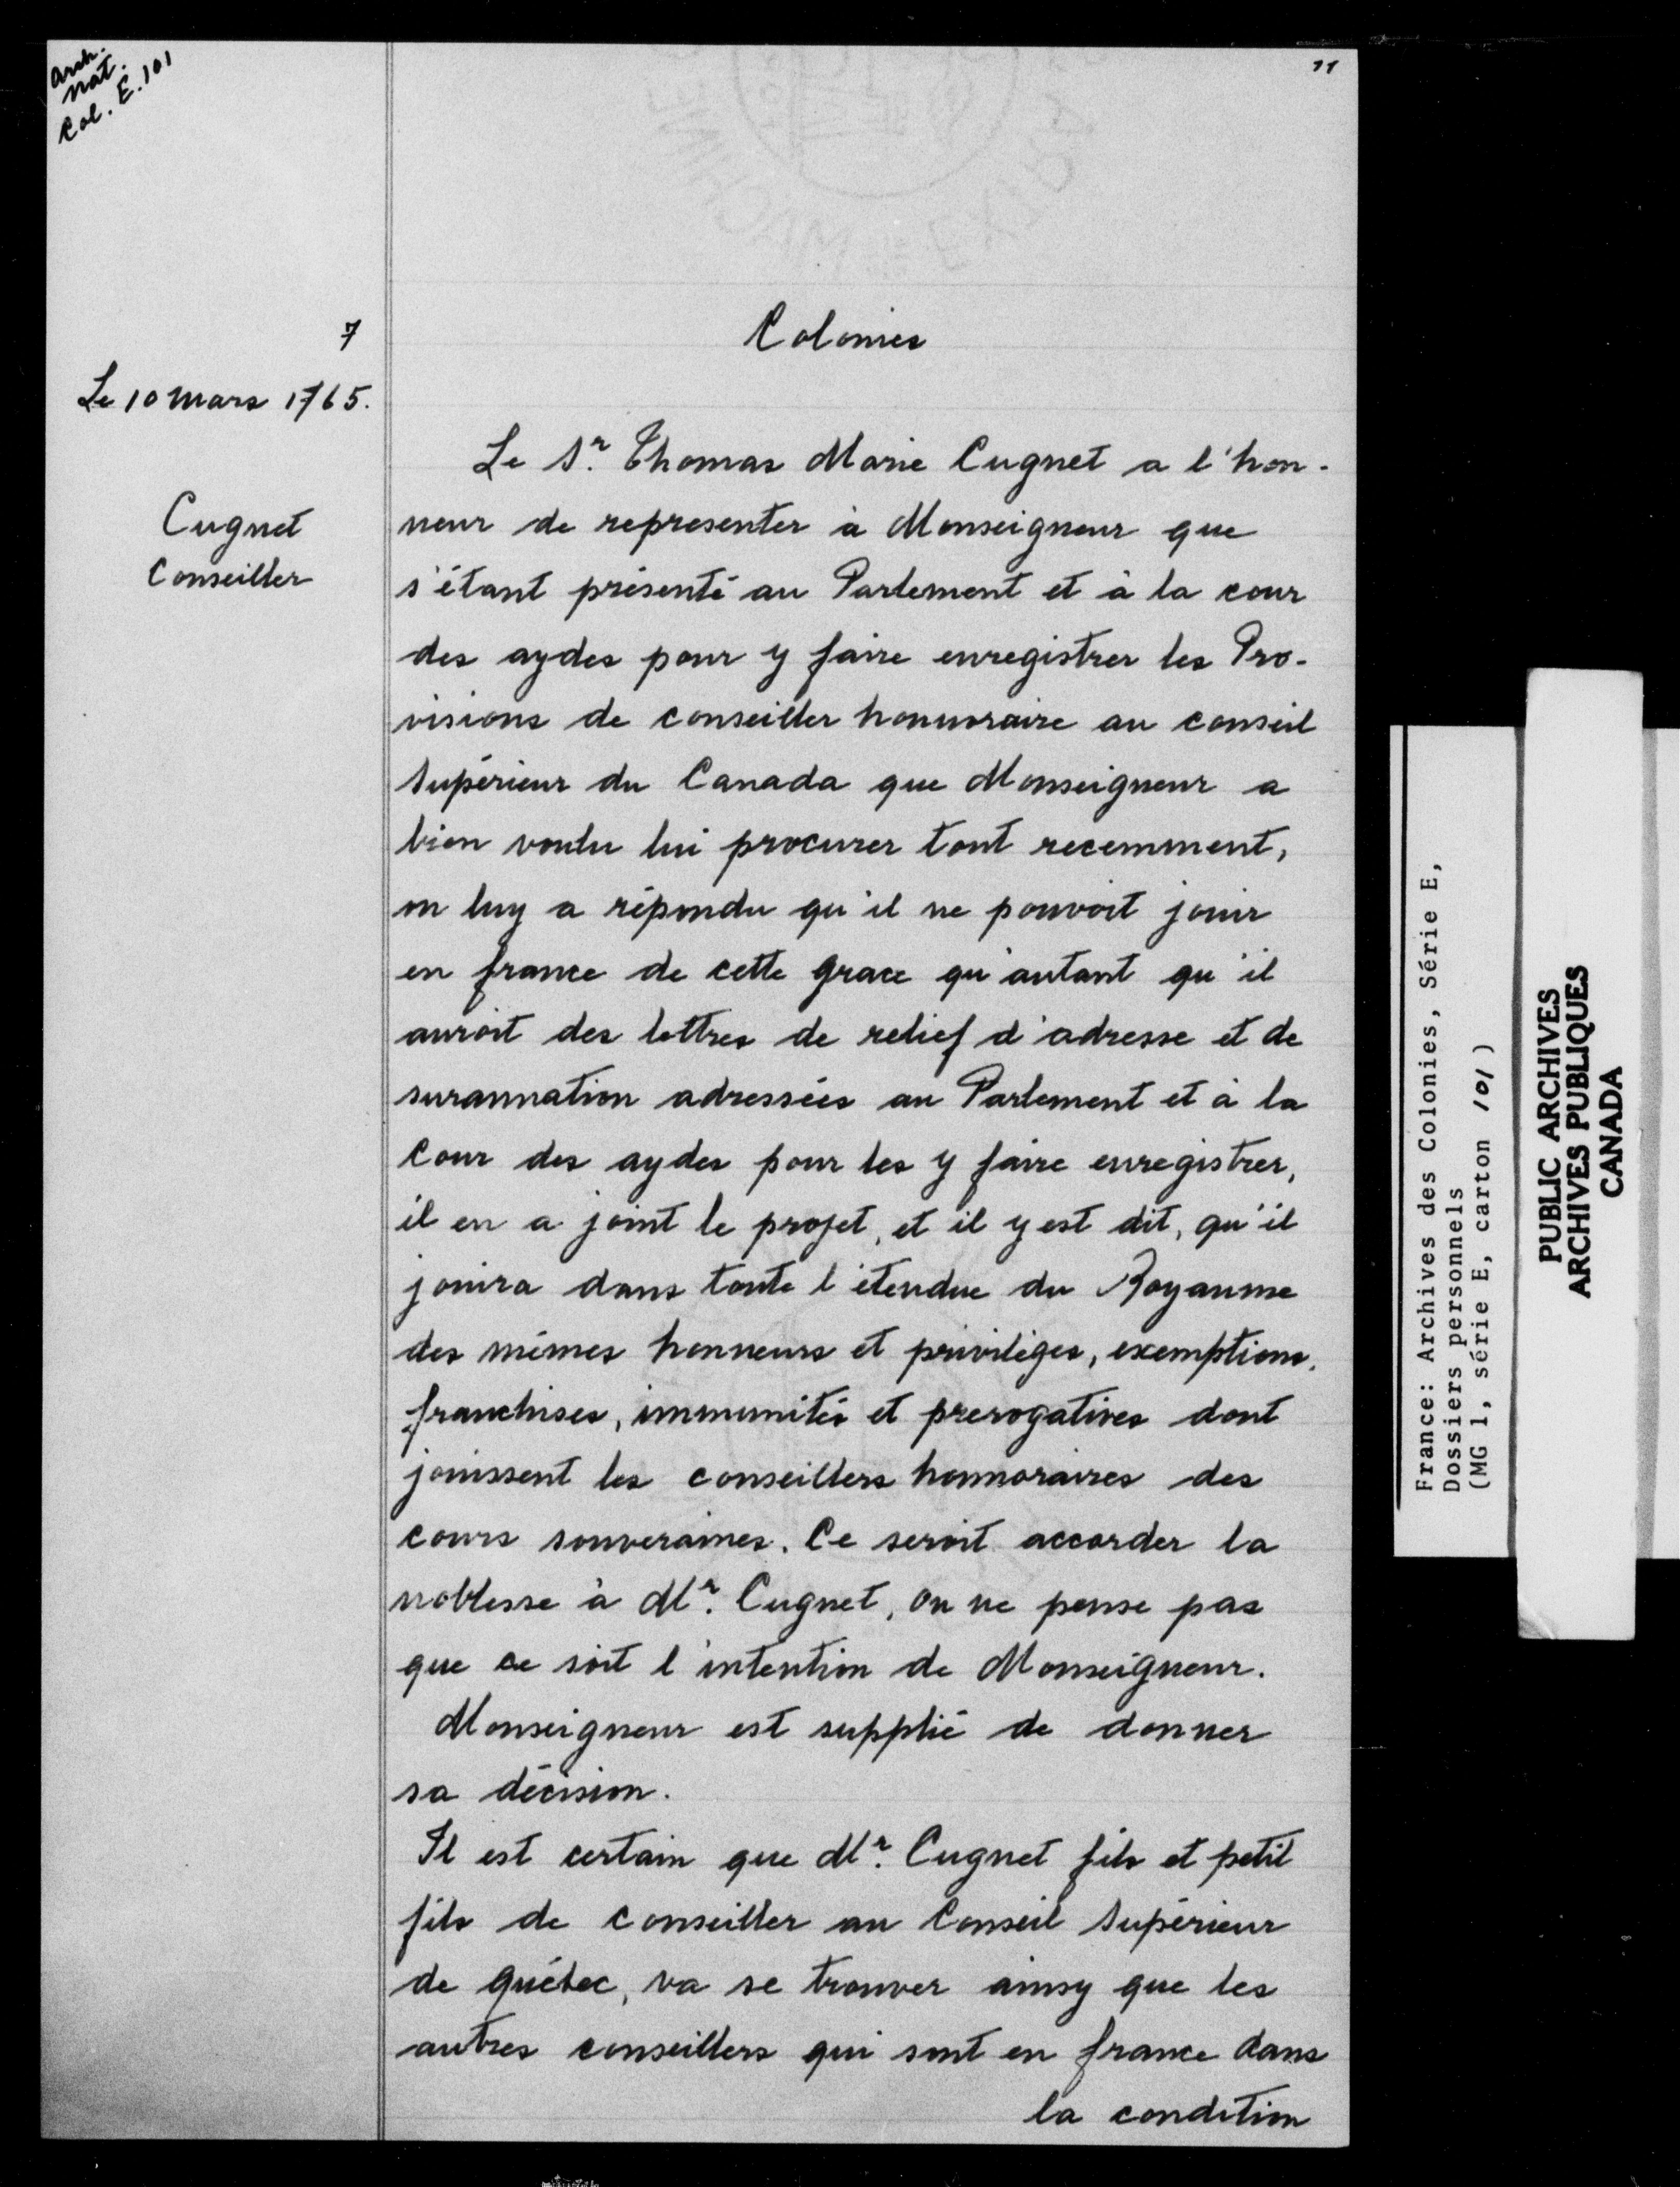 Arch.
nat.
Col. E. 101
11
7
Colonies
Le 10 mars 1765.
Cugnet
Conseiller
Le Sr. Thomas Marie Cugnet a l'hon-
neur de representer à Monseigneur que
s'étant présenté au Parlement et à la cour
des aydes pour y faire enregistrer les Pro-
visions de conseiller honnoraire au conseil
Supérieur du Canada que Monseigneur a
bien voulu lui procurer tout recemment,
on luy a répondu qu'il ne pouvoit jouir
en france de cette grace qu'autant qu'il
auroit des lettres de relief d'adresse et de
surannation adressées au Parlement et à la
Cour des aydes pour les y faire enregistrer,
il en a joint le projet, et il y est dit, qu'il
jouira dans toute l'étendue du Royaume
des mêmes honneurs et privilèges, exemptions,
franchises, immunités et prerogatives dont
jouissent les conseillers honnoraires des
cours souveraines. Ce seroit accorder la
noblesse à Mr. Cugnet, on ne pense pas
que ce soit l'intention de Monseigneur.
Monseigneur est supplié de donner
sa décision.
Il est certain que Mr. Cugnet fils et petit
fils de conseiller au Conseil Supérieur
de québec, va se trouver ainsy que les
autres conseillers qui sont en france dans
la condition
France: Archives des Colonies, Série E,
Dossiers personnels
(MG 1, série E, carton 101)
PUBLIC ARCHIVES
ARCHIVES PUBLIQUES
CANADA